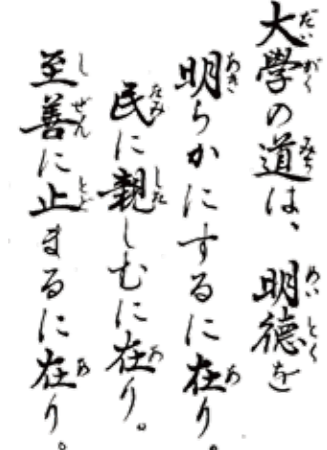 大學の道は、明徳を
明らかにするに在り。
民に親しむに在り。
至善に止まるに在り。